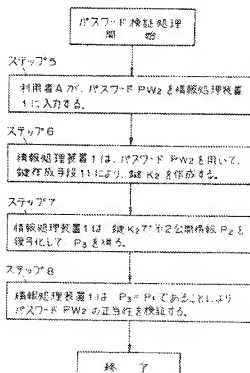 パスワード検証処理
開始
ステップ5
利用者Aが、パスワード PW2 を情報処理装置
1に入力する。
ステップ6
情報処理装置1は、パスワード PW2 を用いて、
鍵作成手段11により、鍵 K2 を作成する。
ステップ7
情報処理装置1は 鍵K2で第2公開情報 P2 を
復号化して P3 を得る。
ステップ8
情報処理装置1は P3=P1 であることにより
パスワード PW2 の正当性を検証する。
終了